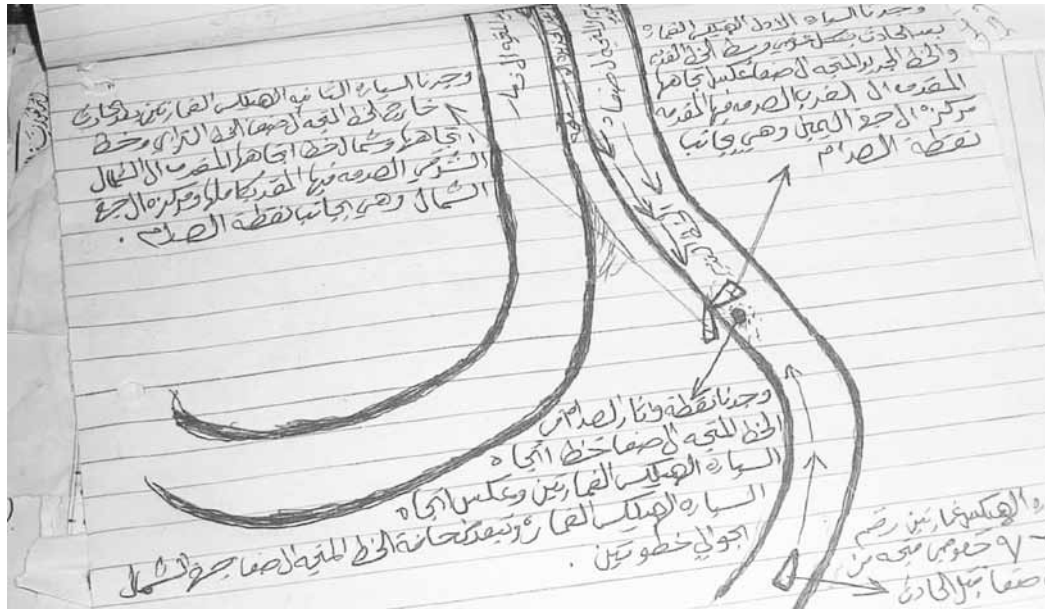 وجدنا السياره الاولى الهيلكس الغماره
بعد الحادث بشكل عرضي وسط الخط
والخط الجديد المتجه ال صنعا عكس اتجاهها
المقدمه ال الغرب الصدمه فيها المقدمه
مركزه ال جع اليميل وهي بجانب
نقطة الصدام
وجدنا السياره الثانيه الهيلكس الغمارتين بعد الحادث
خارج الخط المتجه ال صنعا الخط الترابي وخط
اتجاهها وشمال خط اتجاهها المقدمه ال الشمال
الشرقي الصدمه فيها المقدمه كاملها ومركزه ال جع
الشمال وهي بجانب نقطة الصدام .
وجدنا نقطة واثار الصدام في
الخط المتجه ال صنعا خط اتجاه
السياره الهيلكس الغمارتين وعكس اتجاه
السياره الهيلكس الغماره وتبعد من حافة الخط المتجه ال صنعا جهة الشمال
بحوالي خطوتين .
الهيلكس غمارتين رقم
خصوصي متجه من
صنعا قبل الحادث